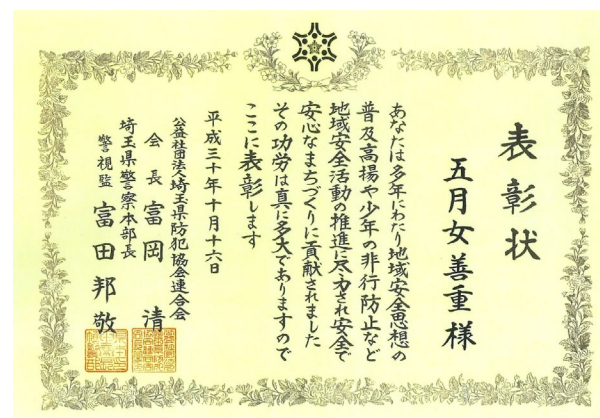 表彰状
五月女善重様
あなたは多年にわたり地域安全思想の
普及高揚や少年の非行防止など
地域安全活動の推進に尽力され安全で
安心なまちづくりに貢献されました
その功労は真に多大でありますので
ここに表彰します
平成三十年十月十六日
公益社団法人埼玉県防犯協会連合会
会長富岡清
埼玉県警察本部長
警視監富田邦敬